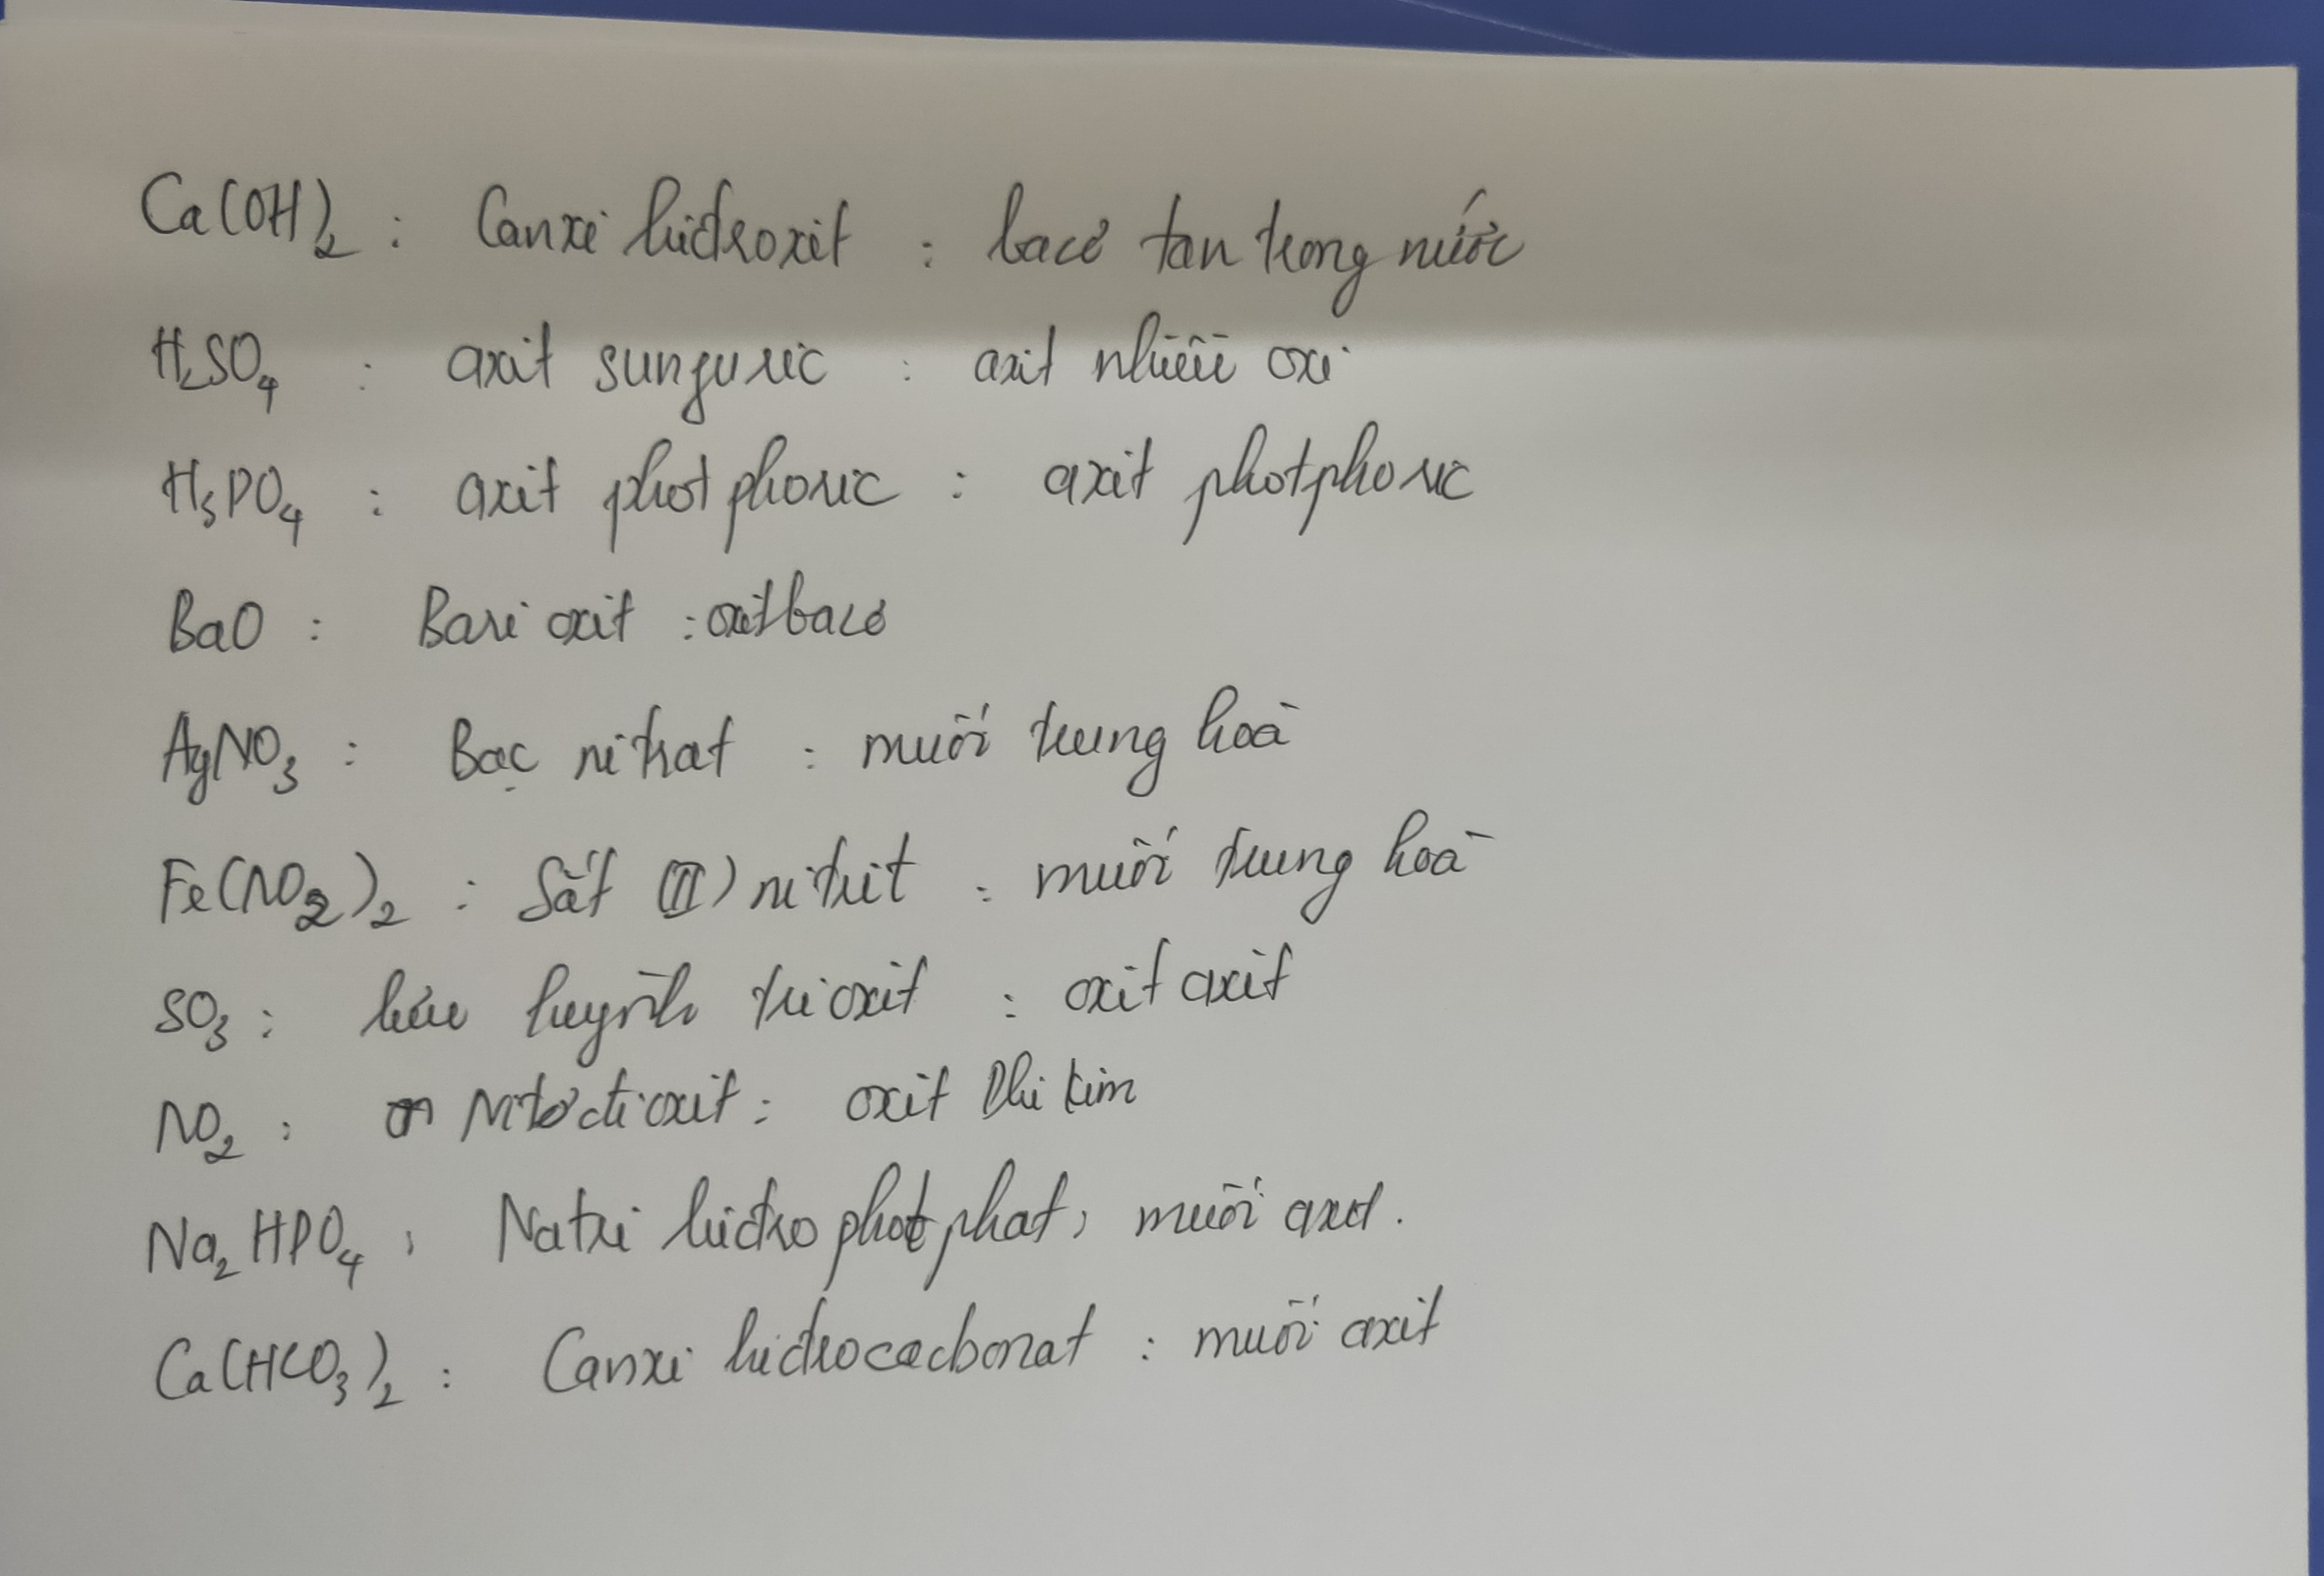 Ca(OH)₂ : Canxi hiđroxit : bazơ tan trong nước
H₂SO₄ : axit sunfuric : axit nhiều oxi
H₃PO₄ : axit photphoric : axit photphoric
BaO : Bari oxit : oxit bazơ
AgNO₃ : Bạc nitrat : muối trung hoà
Fe(NO₂)₂ : Sắt (II) nitrit : muối trung hoà
SO₃ : lưu huỳnh trioxit : oxit axit
NO₂ : Nitơ đioxit : oxit Phi kim
Na₂HPO₄ : Natri hiđro photphat, muối axit.
Ca(HCO₃)₂ : Canxi hiđrocacbonat : muối axit